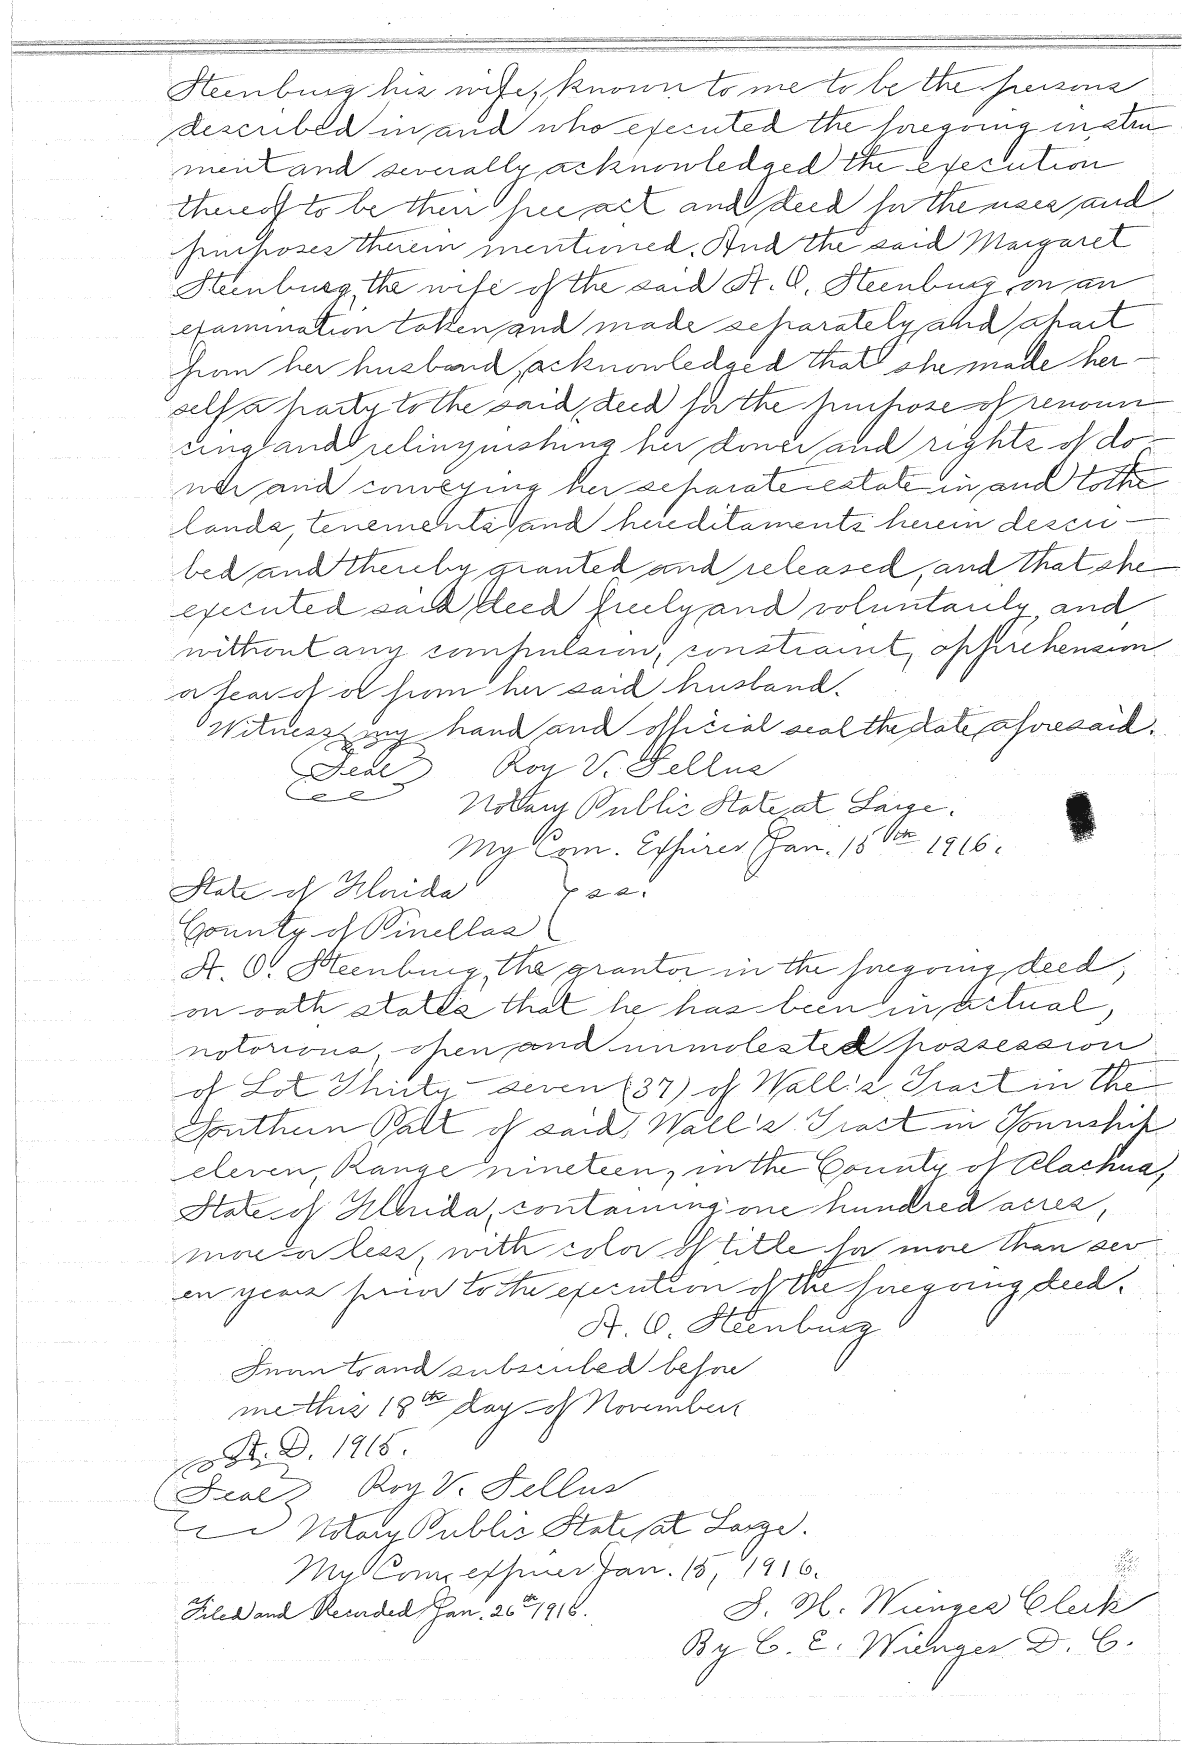 Steenburg his wife, known to me to be the persons
described in and who executed the foregoing instru
ment and severally acknowledged the execution
thereof to be their free act and deed for the uses and
purposes therein mentioned. And the said Margaret
Steenburg, the wife of the said A. O. Steenburg, on an
examination taken and made separately and apart
from her husband, acknowledged that she made her-
self a party to the said deed for the purpose of renoun
cing and relinquishing her dower and rights of do-
wer and conveying her separate estate in and to the
lands, tenements and hereditaments herein descri-
bed and thereby granted and released, and that she
executed said deed freely and voluntarily, and
without any compulsion, constraint, apprehension
or fear of or from her said husband.
Witness my hand and official seal the date aforesaid.
Seal Roy V. Sellus
Notary Public State at Large.
My Com. Expires Jan. 15th 1916.
State of Florida } ss.
County of Pinellas
A. O. Steenburg, the grantor in the foregoing deed,
on oath states that he has been in actual,
notorious, open and unmolested possession
of Lot Thirty-seven (37) of Wall's Tract in the
Southern Patt of said Wall's Tract in Township
eleven, Range nineteen, in the County of Alachua,
State of Florida, containing one hundred acres,
more or less, with color of title for more than sev
en years prior to the execution of the foregoing deed.
A. O. Steenburg
Sworn to and subscribed before
me this 18th day of November
A. D. 1915.
Seal Roy V. Sellus
Notary Public State at Large.
My Com. expires Jan. 15, 1916.
Filed and Recorded Jan. 26th 1916.
S. H. Wienges Clerk
By C. E. Wienges D. C.